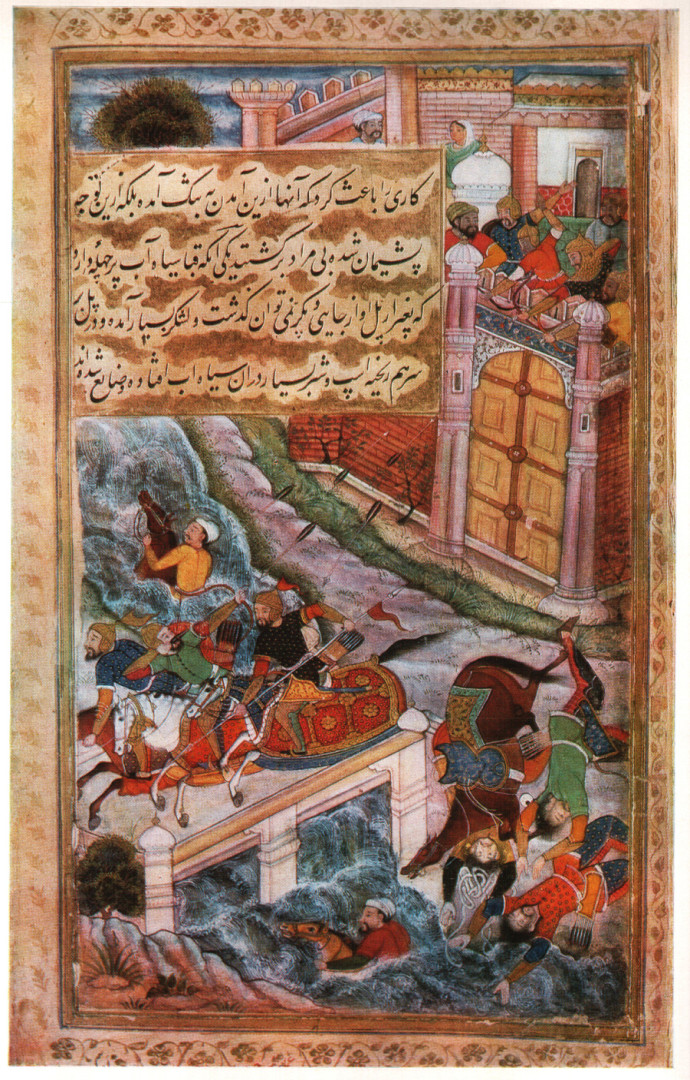 کاری را باعث کرد که آنها ازین آمدن به تنک آمده بلکه ازین توجه
پشیمان شده بی مراد برگشتند یکی آنکه قبا سیاه آب پر چهله دارد
که بغیر از پل او از جای دیگر نمی توان گذشت و لشکر بسیار آمده و در پل بر
سرهم ریخته اسپ و شتر بسیار دران سیاه اب افتاده و ضایع شده اند